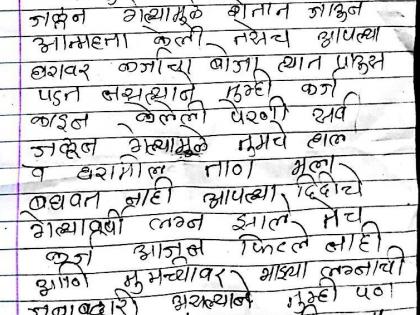 जळून गेल्यामुळे शेतात जाऊन
आत्महत्ता केली तसेच आपल्या
घरावर कर्जाचा बोजा त्यात पाऊस
पडत नसल्याने तुम्ही कर्ज
काढून केलेली पेरणी सर्व
जळून गेल्यामुळे तुमचे हाल
व घरामील ताण मला
बघवत नाही आपल्या दिदीचे
गेल्यावर्षी लग्न झाले तेच
कर्ज आजून फिटले नाही
आणि तुमच्यावर माझ्या लग्नाची
जबाबदारी असल्याने तुम्ही पण